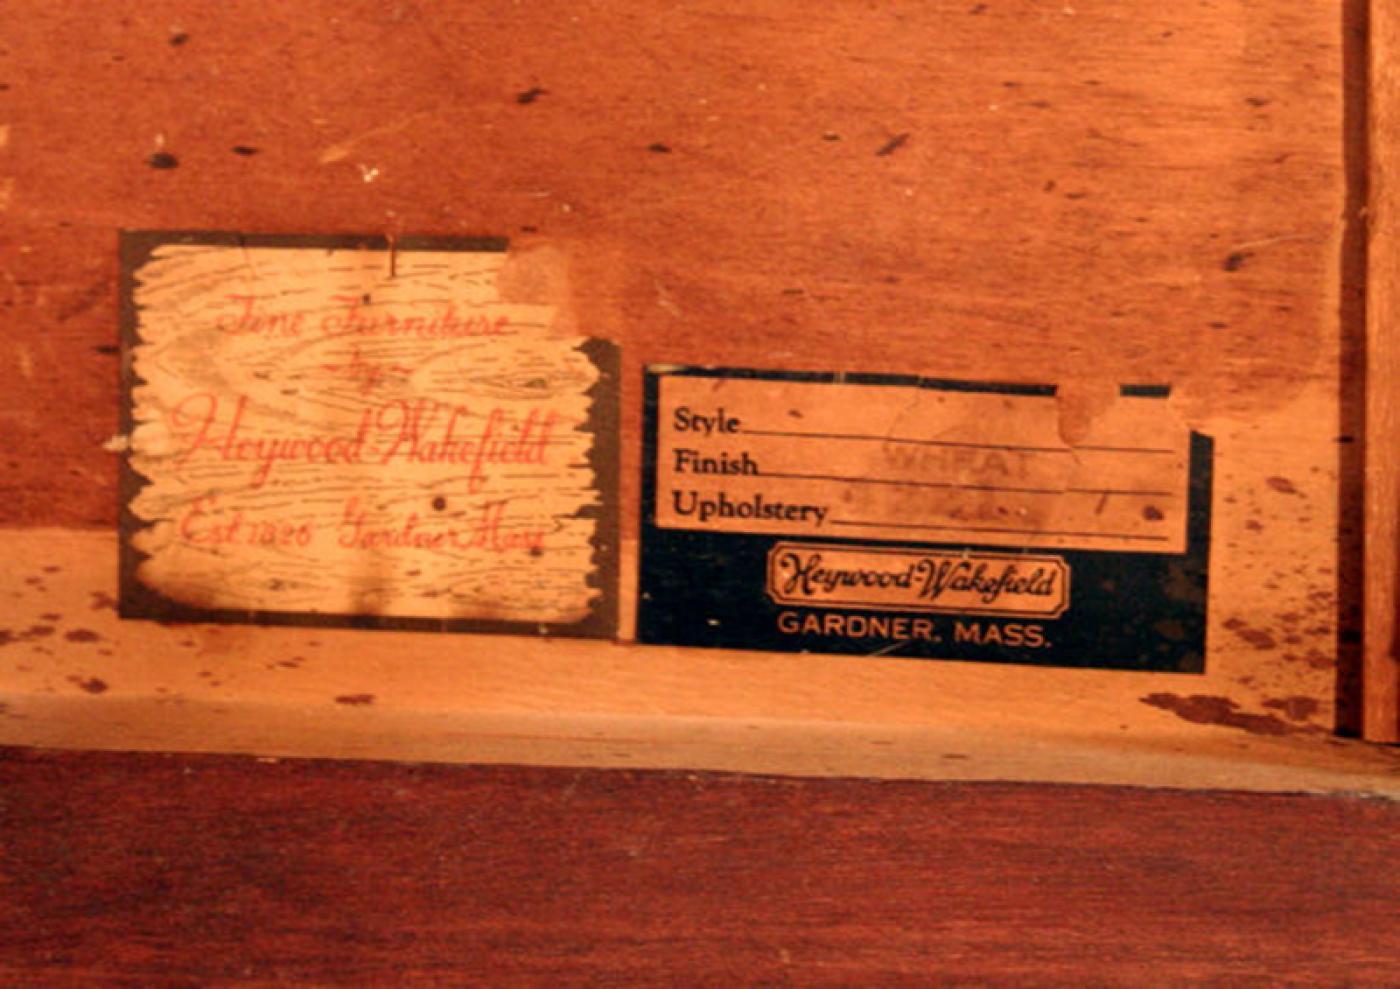 Fine Furniture
~by~
Heywood-Wakefield
Est. 1826 Gardner Mass
Style
Finish WHEAT
Upholstery
Heywood-Wakefield
GARDNER, MASS.